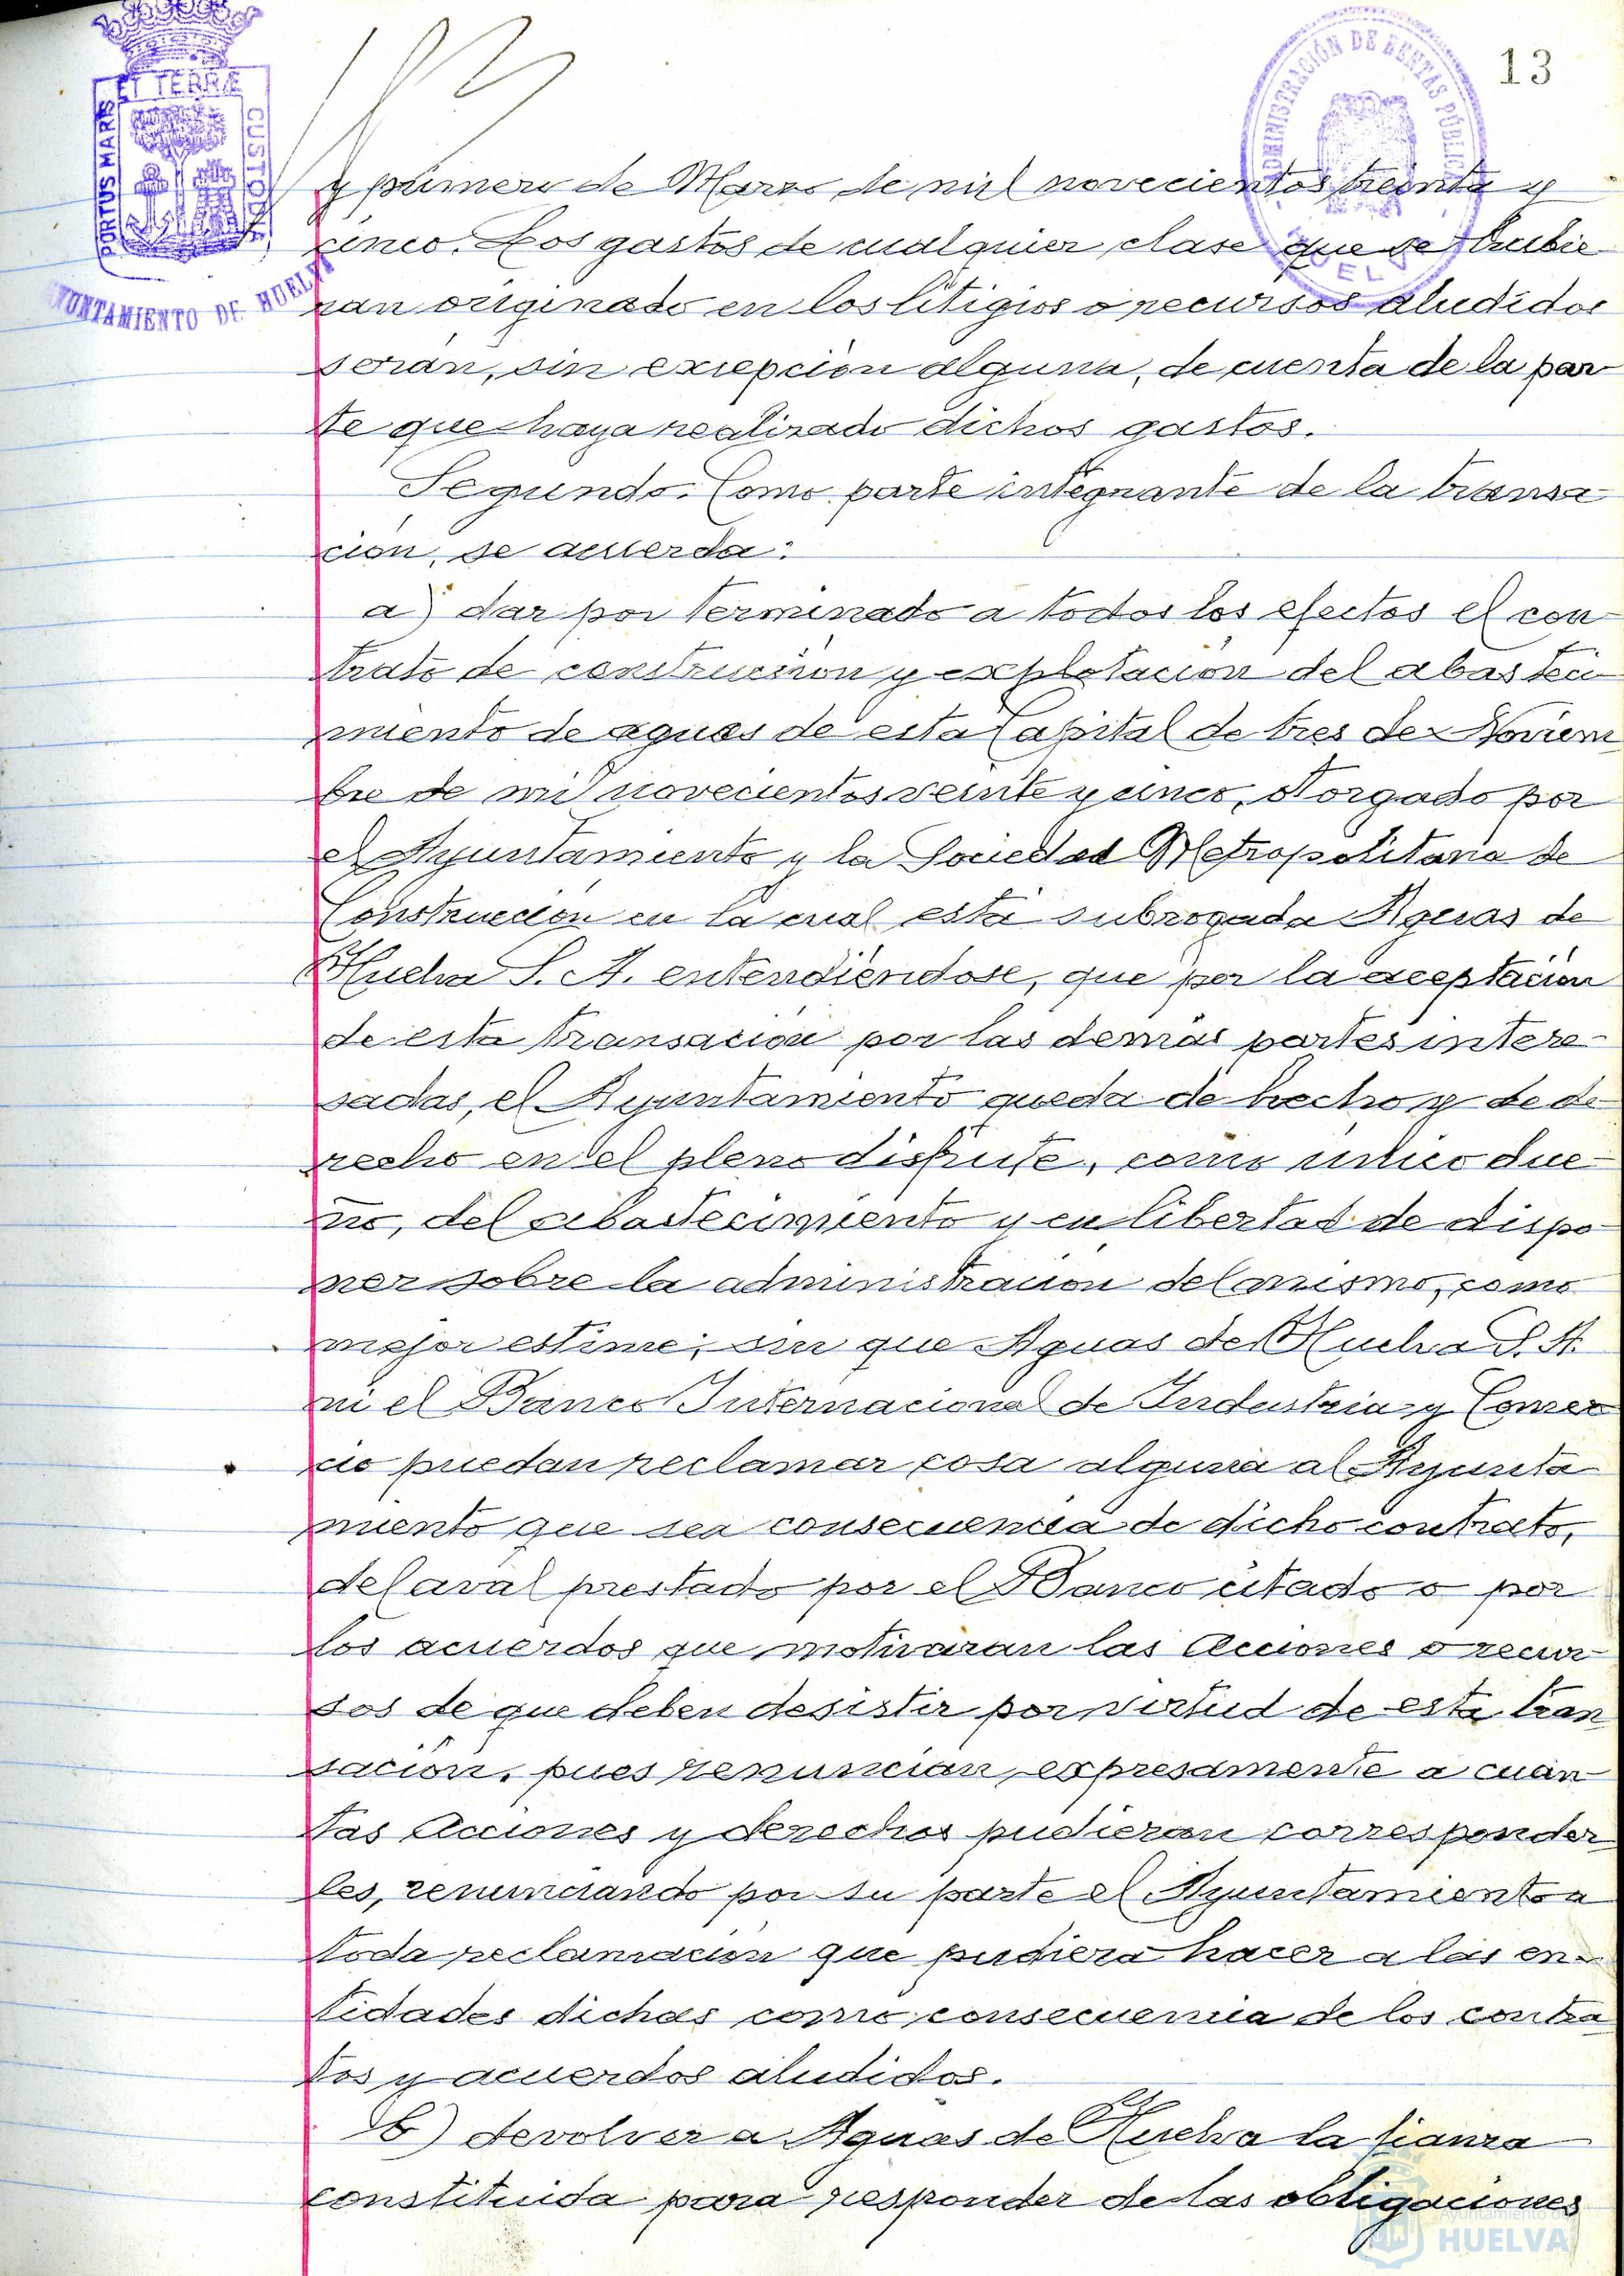 13
ET TERRÆ
PORTUS MARIS
CUSTODIA
AYUNTAMIENTO DE HUELVA
ADMINISTRACIÓN DE RENTAS PÚBLICAS
HUELVA
y primero de Marzo de mil novecientos treinta y
cinco. Los gastos de cualquier clase que se hubie
ran originado en los litigios o recursos aludidos
serán, sin excepción alguna, de cuenta de la par
te que haya realizado dichos gastos.
Segundo. Como parte integrante de la transa
ción, se acuerda:
a) dar por terminado a todos los efectos el con
trato de construcción y explotación del abasteci
miento de aguas de esta Capital de tres de Noviem
bre de mil novecientos veinte y cinco, otorgado por
el Ayuntamiento y la Sociedad Metropolitana de
Construcción en la cual está subrogada Aguas de
Huelva S. A. entendiéndose, que por la aceptación
de esta transación por las demás partes intere-
sadas, el Ayuntamiento queda de hecho y de de-
recho en el pleno disfrute, como único due-
ño, del abastecimiento y en libertad de dispo-
ner sobre la administración del mismo, como
mejor estime; sin que Aguas de Huelva S. A.
ni el Banco Internacional de Industria y Comer
cio puedan reclamar cosa alguna al Ayunta
miento que sea consecuencia de dicho contrato,
del aval prestado por el Banco citado o por
los acuerdos que motivaran las Acciones o recur
sos de que deben desistir por virtud de esta tran
sación, pues renuncian expresamente a cuan
tas Acciones y derechos pudieran corresponder
les, renunciando por su parte el Ayuntamiento a
toda reclamación que pudiera hacer a las en-
tidades dichas como consecuencia de los contra
tos y acuerdos aludidos.
b) devolver a Aguas de Huelva la fianza
constituida para responder de las obligaciones
Ayuntamiento de
HUELVA